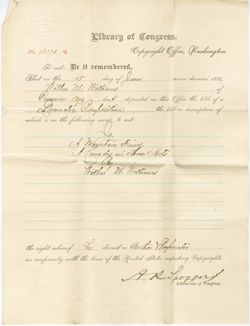 Library of Congress,
Copyright Office, Washington
To wit: Be it remembered,
That on the 15 day of June anno domini 188
Willis M. Williams
of deposited in this Office the title of a
Dramatic Composition the title or description of
which is in the following words, to wit:
A Mountain
A Comedy in Three Acts
by
Willis M. Williams
the right whereof he claims as Author Proprietor
in conformity with the laws of the United States respecting Copyrights.
A. R. Spofford
Librarian of Congress.